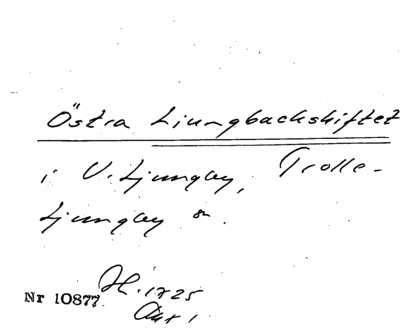 Östra Ljungbackskiftet
i V. Ljungby, Trolle-
Ljungby sn.
H. 1725
Nr 10877
Akt 1